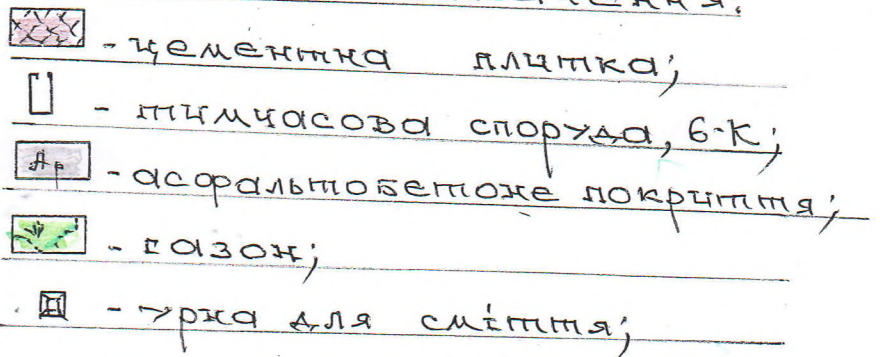 - цементна плитка;
- тимчасова споруда, 6-К;
Ар - асфральтобетоне покриття;
- газон;
- урна для сміття;